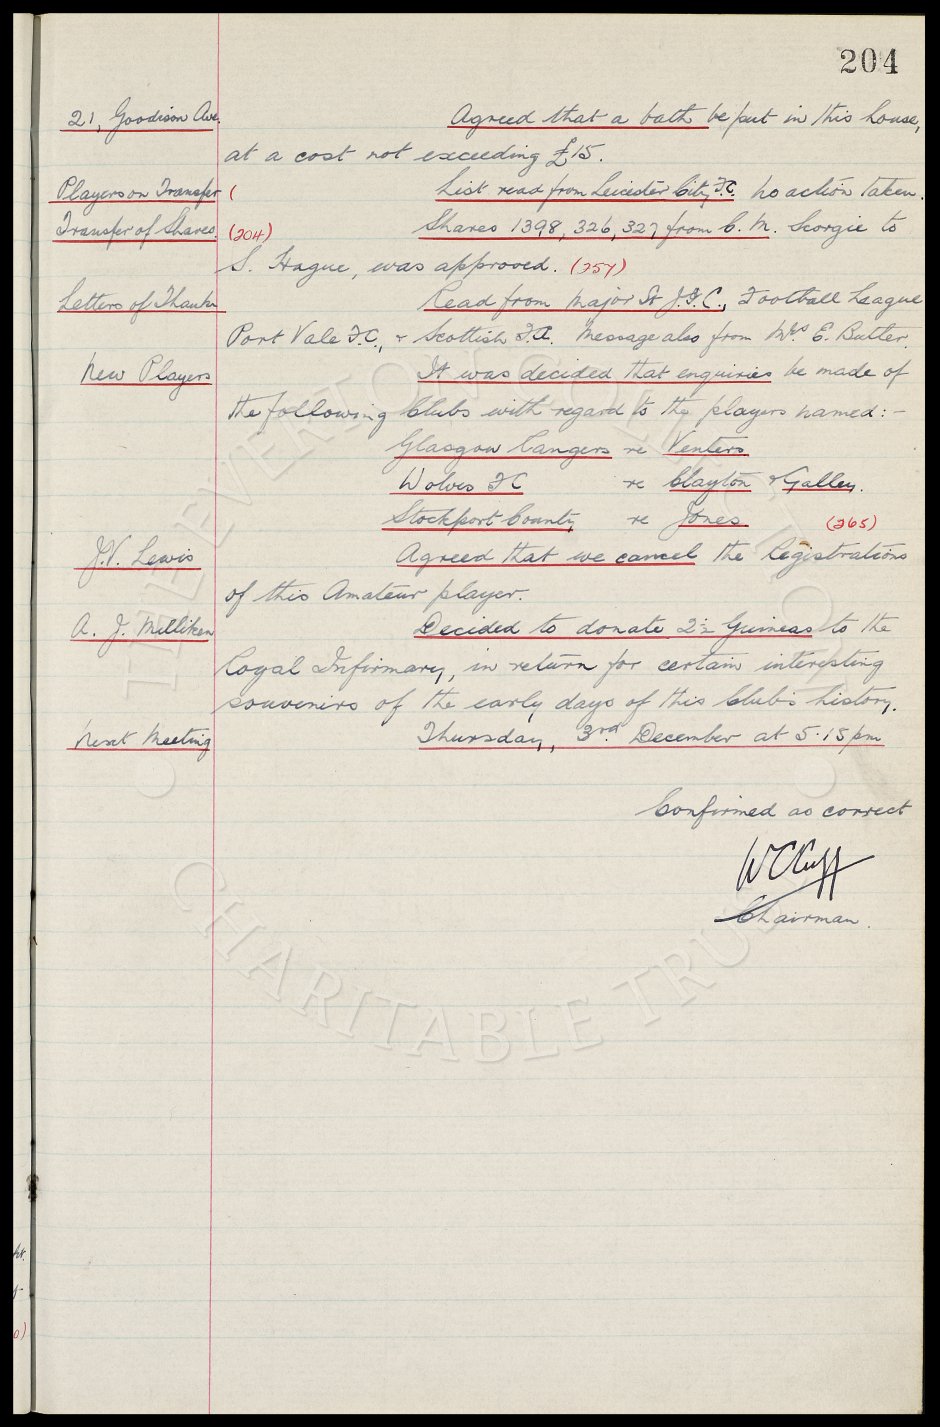 204
21, Goodison Ave. Agreed that a bath be put in this house,
at a cost not exceeding £15.
Players on Transfer ( List read from Leicester City F.C. No action taken.
Transfer of Shares. (204) Shares 1398, 326, 327 from C. M. Scorgie to
S. Hague, was approved. (257)
Letters of Thanks Read from Major St J.F.C., Football League
Port Vale F.C., & Scottish F.A. Message also from Mrs E. Butler.
New Players It was decided that enquiries be made of
the following Clubs with regard to the players named:-
Glasgow Rangers re Venters
Wolves FC re Clayton & Galley.
Stockport County re Jones (265)
J.V. Lewis Agreed that we cancel the Registrations
of this Amateur player.
A. J. Milliken Decided to donate 2½ Guineas to the
Royal Infirmary, in return for certain interesting
souvenirs of the early days of this Club's history.
Next Meeting Thursday, 3rd December at 5.15pm
Confirmed as correct
W C Cuff
Chairman.
THE EVERTON COLLECTION
CHARITABLE TRUST